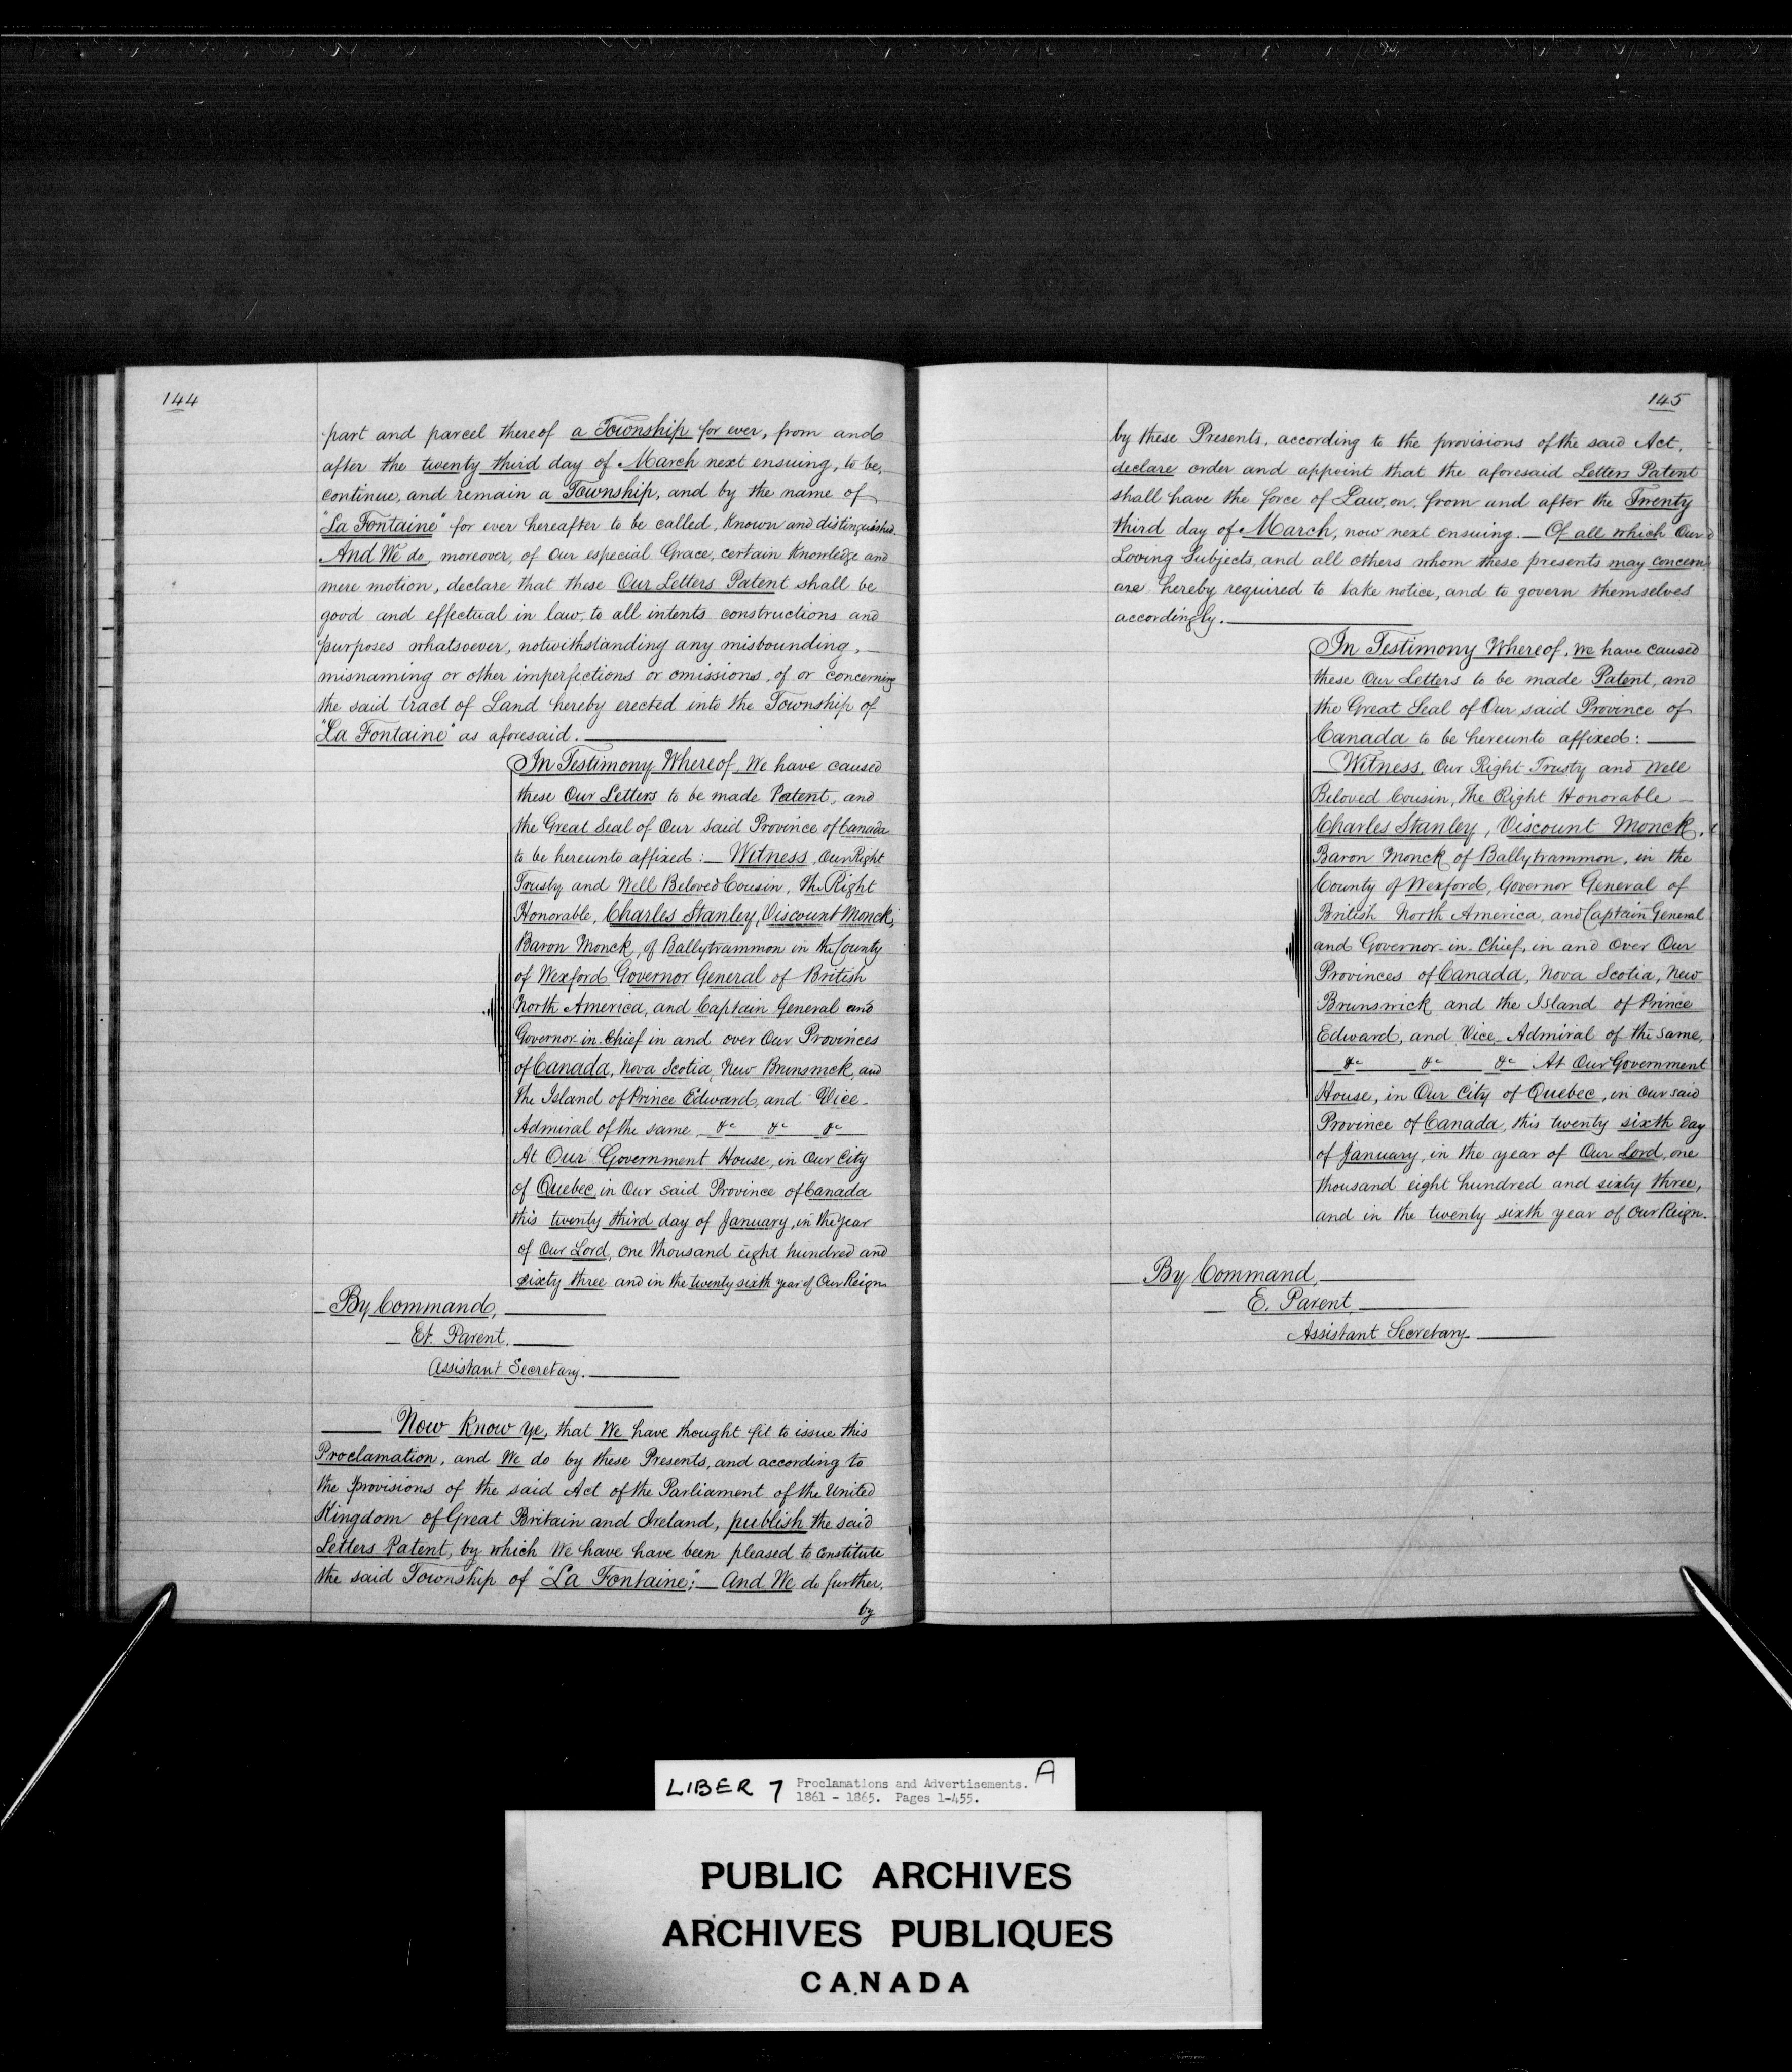 144
part and parcel thereof a Township for ever, from and
after the twenty third day of March next ensuing, to be,
continue, and remain a Township, and by the name of
"La Fontaine" for ever hereafter to be called, Known and distinguished.
And We do, moreover, of our especial Grace, certain Knowledge and
mere motion, declare that these Our Letters Patent shall be
good and effectual in law, to all intents constructions and
purposes whatsoever, notwithstanding any misbounding,
misnaming or other imperfections or omissions, of or concerning
the said tract of Land hereby erected into the Township of
"La Fontaine" as aforesaid.
In Testimony Whereof, We have caused
these Our Letters to be made Patent, and
the Great Seal of Our said Province of Canada
to be hereunto affixed:— Witness, Our Right
Trusty and Well Beloved Cousin, The Right
Honorable, Charles Stanley, Viscount Monck,
Baron Monck, of Ballytrammon in the County
of Wexford Governor General of British
North America, and Captain General and
Governor-in-Chief in and over Our Provinces
of Canada, Nova Scotia, New Brunswick, and
The Island of Prince Edward, and Vice-
Admiral of the same, &c &c &c
At Our Government House, in Our City
of Quebec, in Our said Province of Canada
this twenty third day of January, in the year
of Our Lord, One thousand eight hundred and
sixty three and in the twenty sixth year of Our Reign
By Command,
Et. Parent.
Assistant Secretary.
Now Know Ye, that We have thought fit to issue this
Proclamation, and We do by these Presents, and according to
the provisions of the said Act of the Parliament of the United
Kingdom of Great Britain and Ireland, publish the said
Letters Patent, by which We have have been pleased to Constitute
the said Township of "La Fontaine";— And We do further,
by
145
by these Presents, according to the provisions of the said Act,
declare order and appoint that the aforesaid Letters Patent
shall have the force of Law, on, from and after the Twenty
third day of March, now next ensuing.— Of all which Our
Loving Subjects, and all others whom these presents may concern,
are hereby required to take notice, and to govern themselves
accordingly.
In Testimony Whereof, We have caused
these Our Letters to be made Patent, and
the Great Seal of Our said Province of
Canada to be hereunto affixed:
Witness, Our Right Trusty and Well
Beloved Cousin, The Right Honorable
Charles Stanley, Viscount Monck,
Baron Monck of Ballytrammon, in the
County of Wexford, Governor General of
British North America, and Captain General
and Governor-in-Chief, in and over Our
Provinces of Canada, Nova Scotia, New
Brunswick and the Island of Prince
Edward, and Vice-Admiral of the same,
&c &c &c At Our Government
House, in Our City of Quebec, in Our said
Province of Canada, this twenty sixth day
of January, in the year of Our Lord, one
thousand eight hundred and sixty three,
and in the twenty sixth year of Our Reign.
By Command,
E. Parent,
Assistant Secretary
LIBER 7 Proclamations and Advertisements. A
1861 - 1865. Pages 1-455.
PUBLIC ARCHIVES
ARCHIVES PUBLIQUES
CANADA